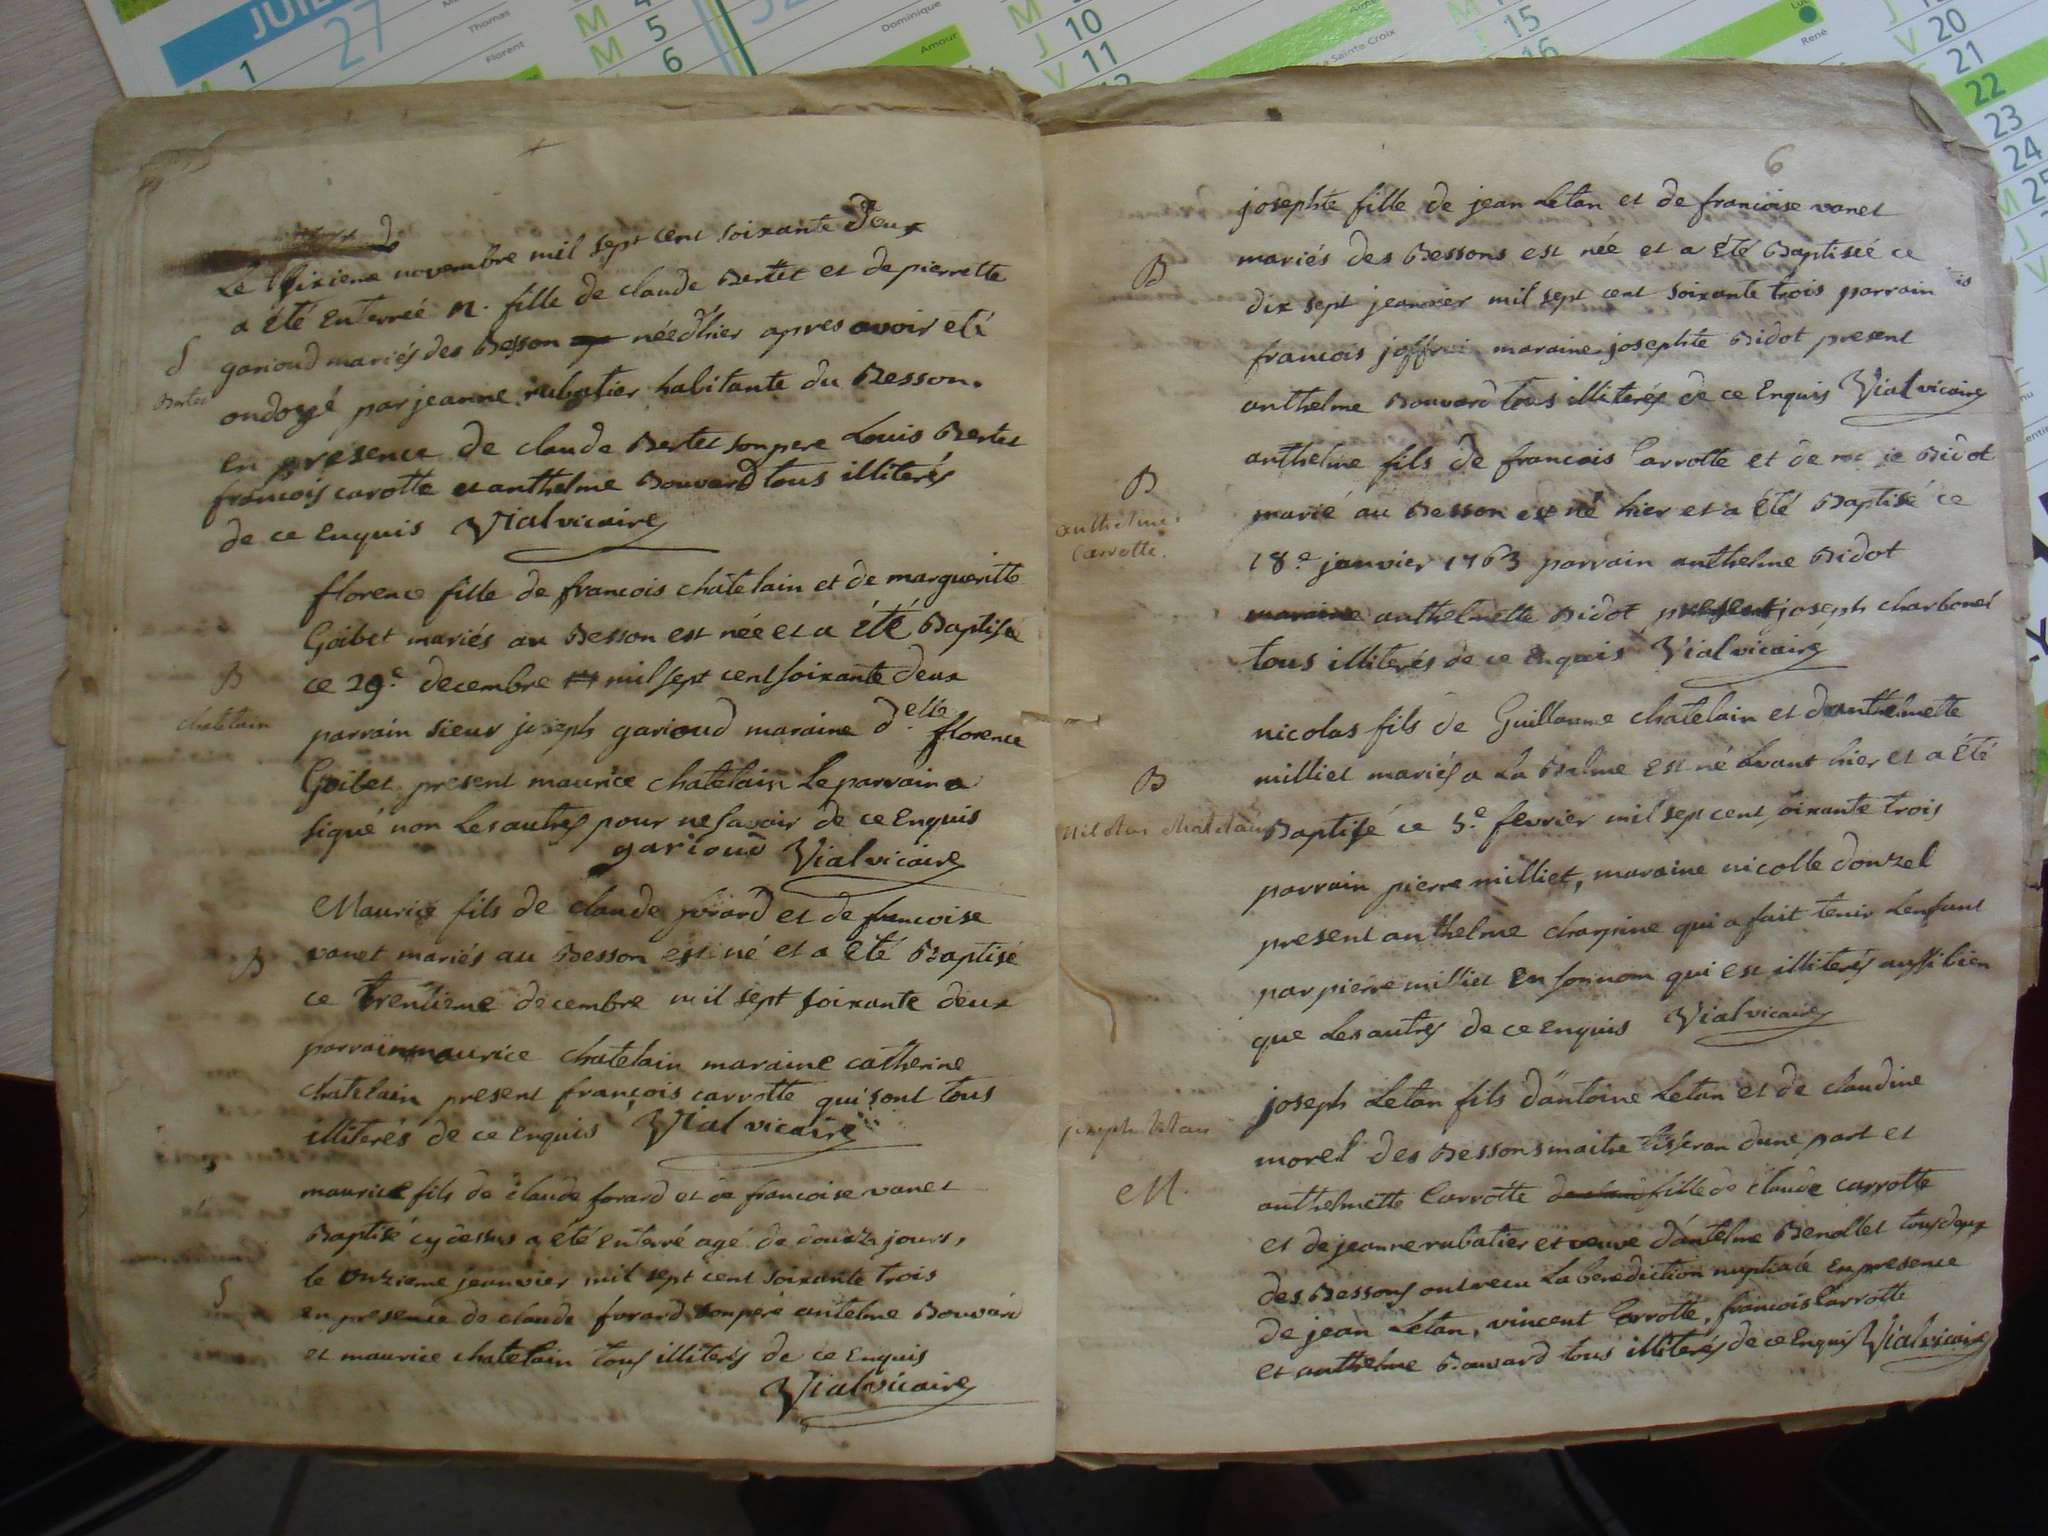 JUIL
27
M 1
Thomas
Florent
M 5
M 6
Dominique
Amour
M
J 10
V 11
Sainte Croix
M
J 15
16
Luc
René
J
V 20
21
22
23
24
M 25
J
V
Le sixieme novembre mil sept cent soixante deux
a été enterrée n. fille de claude Bertet et de pierrette
garioud mariés des Besson née d'hier apres avoir eté
ondoyé par jeanne rubatier habitante du Besson.
en presence de claude Bertet son pere Louis Bertet
francois carotte et anthelme Bouvard tous illiterés
de ce Enquis Vial vicaire
S
Bertet
florence fille de francois chatelain et de margueritte
Goibet mariés au Besson est née et a été Baptisé
ce 29.e decembre mil sept cent soixante deux
parrain sieur joseph garioud maraine d.elle florence
Goibet present maurice chatelain Le parrain a
signé non Les autres pour ne savoir de ce Enquis
garioud Vial vicaire
B
chatelain
Maurice fils de claude forard et de francoise
vanet mariés au Besson est né et a été Baptisé
ce trentieme decembre mil sept soixante deux
parrain maurice chatelain maraine catherine
chatelain present françois carrotte qui sont tous
illiterés de ce Enquis Vial vicaire
B
maurice fils de claude forard et de francoise vanet
Baptisé cy dessus a été enterré agé de douze jours,
le onzieme jeanvier mil sept cent soixante trois
en presence de claude forard son pere antelme Bouvard
et maurice chatelain tous illiterés de ce Enquis
Vial vicaire
S
6
josephte fille de jean Letan et de francoise vanet
mariés des Bessons est née et a été Baptiseé ce
dix sept jeanvier mil sept cent soixante trois parrain
francois joffrei maraine josephte Bidot present
anthelme Bouvard tous illiterés de ce Enquis Vial vicaire
B
anthelme fils de francois Carrotte et de Bidot
marié au Besson est né hier et a été Baptisé ce
18.e janvier 1763 parrain anthelme Bidot
maraine anthelmette Bidot present joseph charbonet
tous illiterés de ce Enquis Vial vicaire
B
anthelme
Carrotte.
nicolas fils de Guillaume chatelain et d'anthelmette
milliet mariés a La Balme est né Avant hier et a été
Baptisé ce 5.e fevrier mil sept cent soixante trois
parrain pierre milliet, maraine nicolle donzel
present anthelme charpine qui a fait tenir Lenfant
par pierre milliet en son nom qui est illiterés aussi bien
que Les autres de ce Enquis Vial vicaire
B
Nicolas chatelain
joseph Letan fils d'antoine Letan et de claudine
morel des Bessons maitre tisseran dune part et
anthelmette Carrotte fille de claude carrotte
et de jeanne rubatier et veuve d'antelme Benollet tous deux
des Bessons ont recu La benediction nuptiale en presence
de jean Letan, vincent Carrotte, francois Carrotte
et anthelme Bouvard tous illiterés de ce Enquis Vial vicaire
joseph letan
M.